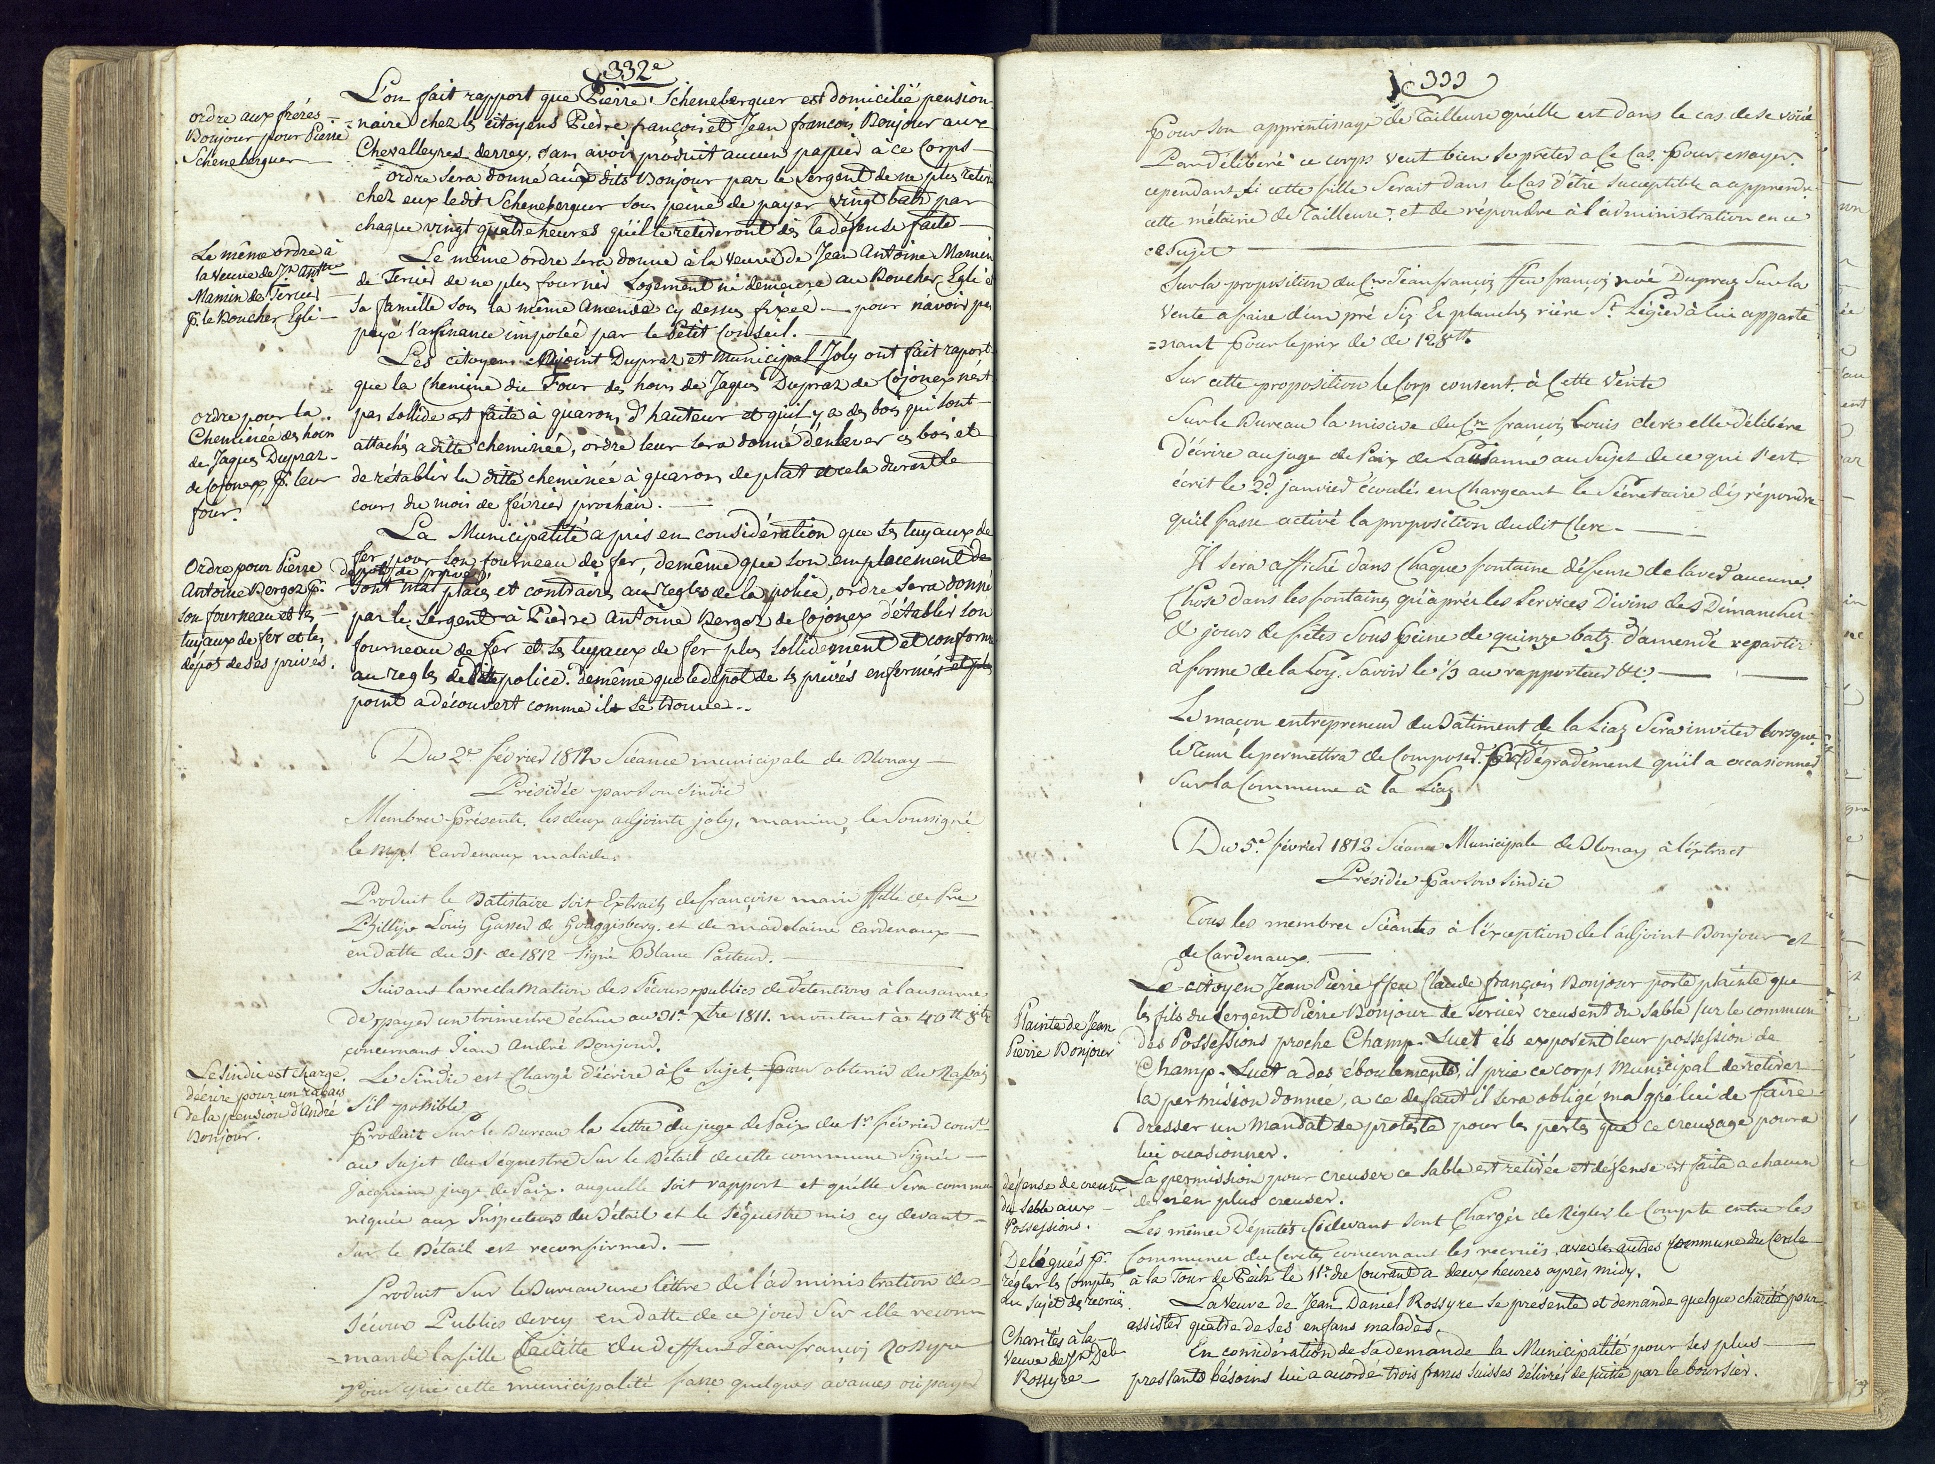 332e
L'on fait rapport que Pierre Scheneberguer est domicilié pension-
ordre aux fréres
Bonjour pour Pierre
Scheneberguer
=naire chez les citoyens Pierre françois et Jean francois Bonjour aux
Chevalleyres derrey, sans avoir produit aucun papier à ce Corps
ordre sera donné aux dits Bonjour par le Sergent de ne plus retirer
chez eux ledit Scheneberguer sous peine de payer vingt batz par
chaque vingt quatre heures qu'il le retireront dès la défense faite
Le même ordre à
la veuve de Jn Antne
Mamin de Tercier
pr. le Boucher Egli
Le même ordre sera donné à la veuve de Jean Antoine Mamin
de Tercier de ne plus fournir Logement ni demeure au Boucher Egli et
sa famille sous la même Amende cy dessus fixée — pour n'avoir pas
payé la finance imposée par le Petit Conseil.
Les citoyens adjoint Dupraz et Municipal Joly ont fait raport
que la Cheminée du Four des hoirs de Jaques Dupraz de Cojonex n'est
ordre pour la
Cheminée des hoirs
de Jaques Dupraz
de Cojonex, pr. leur
four.
pas sollide est faite à quarons d'hauteur et qu'il y a des bois qui sont
attachés a dite cheminée, ordre leur sera donné d'enlever ces bois et
de rétablir la ditte cheminée à quarons de plat et cela durant le
cours du mois de février prochain.
La Municipalité a pris en considération que les tuyaux de
Ordre pour Pierre
Antoine Bergoz pr.
son fourneau et les
tuyaux de fer et les
dépot de ses privés.
fer pour son fourneau de fer, demême que son emplacement de
depots de privés
sont mal placés et contraires aux regles de la police, ordre sera donné
par le Sergent à Pierre Antoine Bergoz de Cojonex d'établir son
fourneau de fer et les tuyaux de fer plus sollidement et conforme
au regles de dite police. demême que le dépot de ses privés enfermés et pas
point a découvert comme il se trouve..
Du 2e février 1812 Séance municipale de Blonay
Présidée par son Sindic
Membres présents, les deux adjoints joly, mamin, le Soussigné
le Mpl Cardenaux malade.
Produit le Batistaire soit Extrait de françoise marie ffille de feu
Phillipe Louis Gasser de Guaggisberg, et de madelaine Cardenaux
en datte du 31 de 1812 Signé Blanc Pasteur.
Suivant la réclamation des Sécours publics de détentions à lausanne
de payer un trimestre échu au 31e Xbre 1811. montant à 40
concernant Jean André Bonjour.
Le Sindic est chargé
d'écrire pour un rabais
de la pension d'André
Bonjour.
Le Sindic est Chargé d'écrire à Ce Sujet pour obtenir du Rabais
S'il possible
Produit Sur le Bureau la Lettre du juge de Paix du 1er février cour.t
au Sujet du Séquestre sur le Bétail de cette commune Signée
Jacquiere juge de Paix. auquelle soit rapport et quelle Sera commu
niquée aux Inspecteurs du Bétail et le Séquestre mis cy devant
sur le Bétail est reconfirmer.
Produit Sur le Bureau une lettre de l'administration des
Sécours Publics de vevey en datte de ce jour Sur elle recom
=mande la fille du deffunt Jean françois Rossyre
pour que cette municipalité fasse quelques avances ou payer
333
Pour son apprentissage de Tailleuse quelle est dans le cas de se vouée
Par délibéré ce corps veut bien se prêter a Ce Cas pour essayer.
cependant, si cette fille Serait dans le Cas d'être suceptible a apprendre
cette métairie de Tailleuse. et de répondre à l'administration en ce
ce Sujet
Sur la proposition du Cn Jean françois ffeu françois Dupraz Sur la
Vente a faire d'un pré Siz Es planches rière St Légier à lui apparte
=nant pour le prix de de 128
Sur cette proposition le Corp consent à Cette Vente
Sur le Bureau la missive du Cn françois Louis clerc elle délibére
d'écrire au juge de Paix de Lausanne au Sujet de ce qui s'est
écrit le 2d janvier écoulés en Chargeant le Sécretaire d'y répondre
qu'il fasse activé la proposition dudit Clerc
Il sera affiché dans Chaque fontaine défense de laver aucunes
Chose dans les fontaines qu'après les Services Divins des Dimanches
& jours de fêtes Sous peine de quinze batz d'amende repartir
à forme de la Loy. Savoir le 1/3 au rapporteur &c.
Le maçon entrepreneur du Bâtiment de la Liaz Sera inviter lorsque
le Tems le permettra de Composer pr le dégradement qu'il a occasionner
Sur la Commune à la Liaz
Du 5e février 1812 Séance Municipale de Blonay à l'extract
Présidée par son Sindic
Tous les membres Séants à l'éxception de l'adjoint Bonjour et
de Cardenaux.
Le citoyen Jean Pierre ffeu Claude françois Bonjour porte plainte que
Plainte de Jean
Pierre Bonjour
les fils du Sergent Pierre Bonjour de Tercier creusent du sable sur le commun
des Possessions proche Champ-Luet ils exposent leur possession de
Champ-Luet a des éboulements, il prie ce corps Municipal de retirer
la permission donnée, a ce defaut il sera obligé malgré lui de faire
dresser un Mandat de proteste pour les pertes que ce creusage poura
lui occasionner.
défense de creuser
du sable aux
Possessions.
La permission pour creuser ce sable est retirée et défense est faite a chacun
de n'en plus creuser.
Les même Députés Cidevant sont Chargés de Régler le Compte entre les
Délégués pr.
régler les Comptes
au sujet des recruës.
Communes du Cercles concernant les recruës avec les autres Commune du Cercle
à la Tour de Peilz le 11e du Courant a deux heures après midy.
La Veuve de Jean Daniel Rossyre se presente et demande quelque charité pour
assister quatre de ses enfans malades.
Charités à la
Veuve de Jn Del
Rossyre
En considération de sa demande la Municipalité pour ses plus
pressants bésoins lui a acordé trois francs suisses délivrés de suite par le boursier.